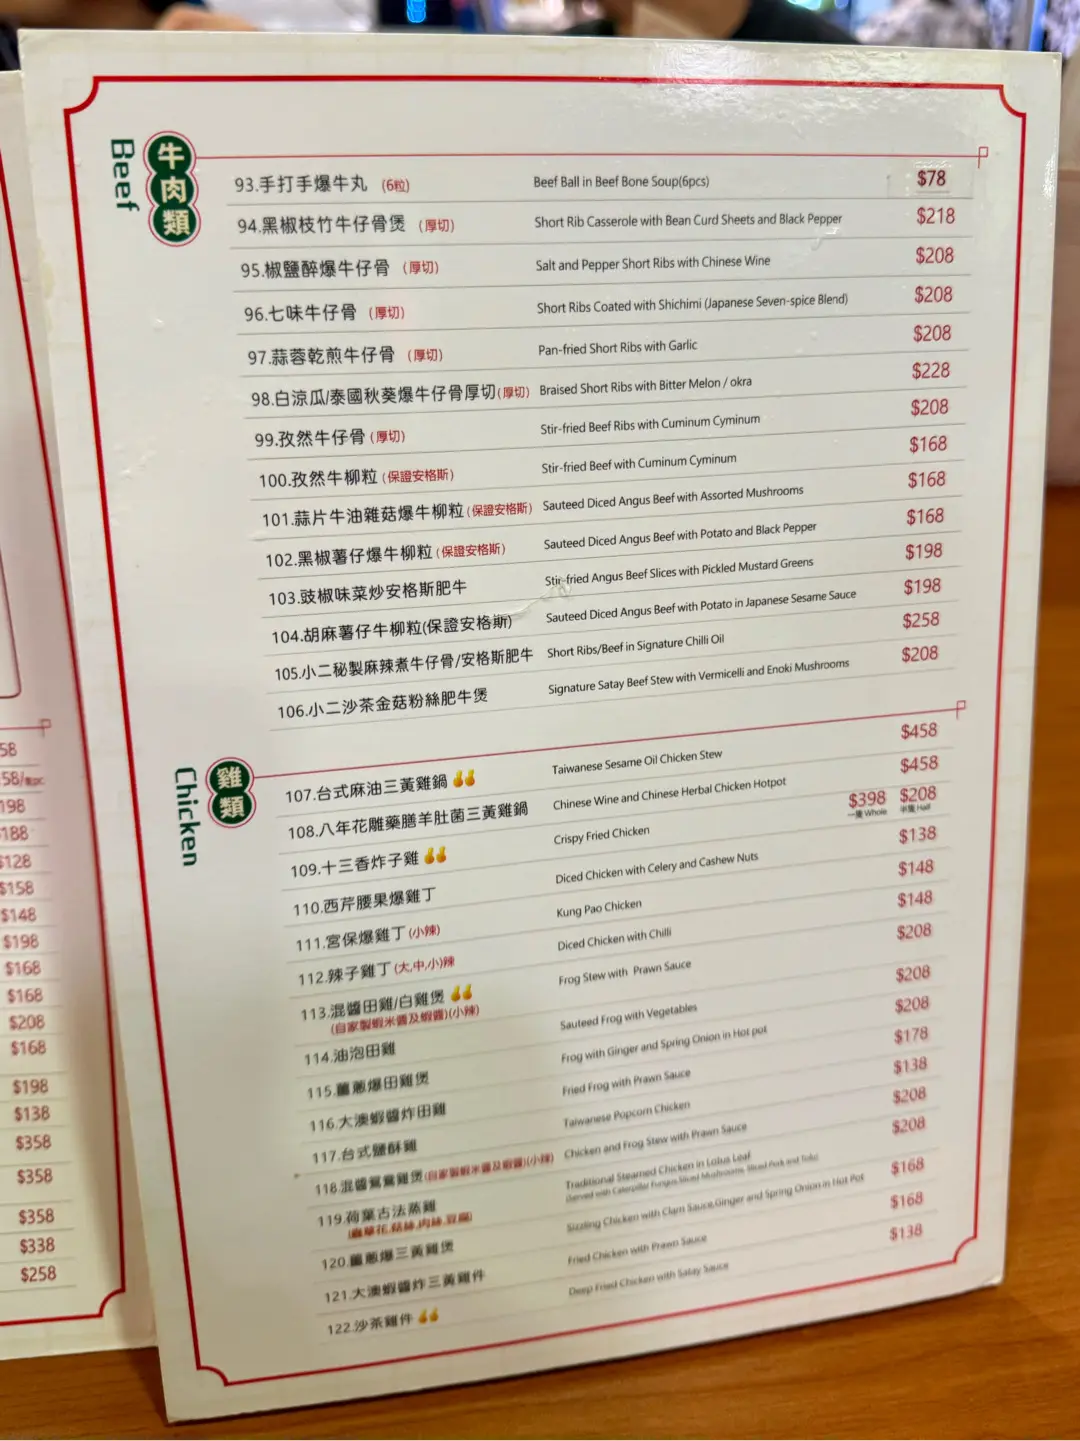 58
58/
198
188
$128
$158
$148
$198
$168
$168
$208
$168
$198
$138
$358
$358
$358
$338
$258
牛肉類
Beef
93.手打手爆牛丸 (6粒) Beef Ball in Beef Bone Soup(6pcs) $78
94.黑椒枝竹牛仔骨煲 (厚切) Short Rib Casserole with Bean Curd Sheets and Black Pepper $218
95.椒鹽醉爆牛仔骨 (厚切) Salt and Pepper Short Ribs with Chinese Wine $208
96.七味牛仔骨 (厚切) Short Ribs Coated with Shichimi (Japanese Seven-spice Blend) $208
97.蒜蓉乾煎牛仔骨 (厚切) Pan-fried Short Ribs with Garlic $208
98.白涼瓜/泰國秋葵爆牛仔骨厚切(厚切) Braised Short Ribs with Bitter Melon / okra $228
99.孜然牛仔骨(厚切) Stir-fried Beef Ribs with Cuminum Cyminum $208
100.孜然牛柳粒(保證安格斯) Stir-fried Beef with Cuminum Cyminum $168
101.蒜片牛油雜菇爆牛柳粒(保證安格斯) Sauteed Diced Angus Beef with Assorted Mushrooms $168
102.黑椒薯仔爆牛柳粒(保證安格斯) Sauteed Diced Angus Beef with Potato and Black Pepper $168
103.豉椒味菜炒安格斯肥牛 Stir-fried Angus Beef Slices with Pickled Mustard Greens $198
104.胡麻薯仔牛柳粒(保證安格斯) Sauteed Diced Angus Beef with Potato in Japanese Sesame Sauce $198
105.小二秘製麻辣煮牛仔骨/安格斯肥牛 Short Ribs/Beef in Signature Chilli Oil $258
106.小二沙茶金菇粉絲肥牛煲 Signature Satay Beef Stew with Vermicelli and Enoki Mushrooms $208
雞類
Chicken
107.台式麻油三黃雞鍋 Taiwanese Sesame Oil Chicken Stew $458
108.八年花雕藥膳羊肚菌三黃雞鍋 Chinese Wine and Chinese Herbal Chicken Hotpot $458
109.十三香炸子雞 Crispy Fried Chicken $398 $208
一隻 Whole 半隻 Half
110.西芹腰果爆雞丁 Diced Chicken with Celery and Cashew Nuts $138
111.宮保爆雞丁(小辣) Kung Pao Chicken $148
112.辣子雞丁(大,中,小)辣 Diced Chicken with Chilli $148
113.混醬田雞/白雞煲 Frog Stew with Prawn Sauce $208
(自家製蝦米醬及蝦醬)(小辣)
114.油泡田雞 Sauteed Frog with Vegetables $208
115.薑蔥爆田雞煲 Frog with Ginger and Spring Onion in Hot pot $208
116.大澳蝦醬炸田雞 Fried Frog with Prawn Sauce $178
117.台式鹽酥雞 Taiwanese Popcorn Chicken $138
118.混醬鴛鴦雞煲(自家製蝦米醬及蝦醬)(小辣) Chicken and Frog Stew with Prawn Sauce $208
119.荷葉古法蒸雞 Traditional Steamed Chicken in Lotus Leaf $208
(蟲草花,菇絲,肉絲,豆腐) (Served with Caterpillar Fungus, Sliced Mushrooms, Sliced Pork and Tofu)
120.薑蔥爆三黃雞煲 Sizzling Chicken with Clam Sauce,Ginger and Spring Onion in Hot Pot $168
121.大澳蝦醬炸三黃雞件 Fried Chicken with Prawn Sauce $168
122.沙茶雞件 Deep Fried Chicken with Satay Sauce $138